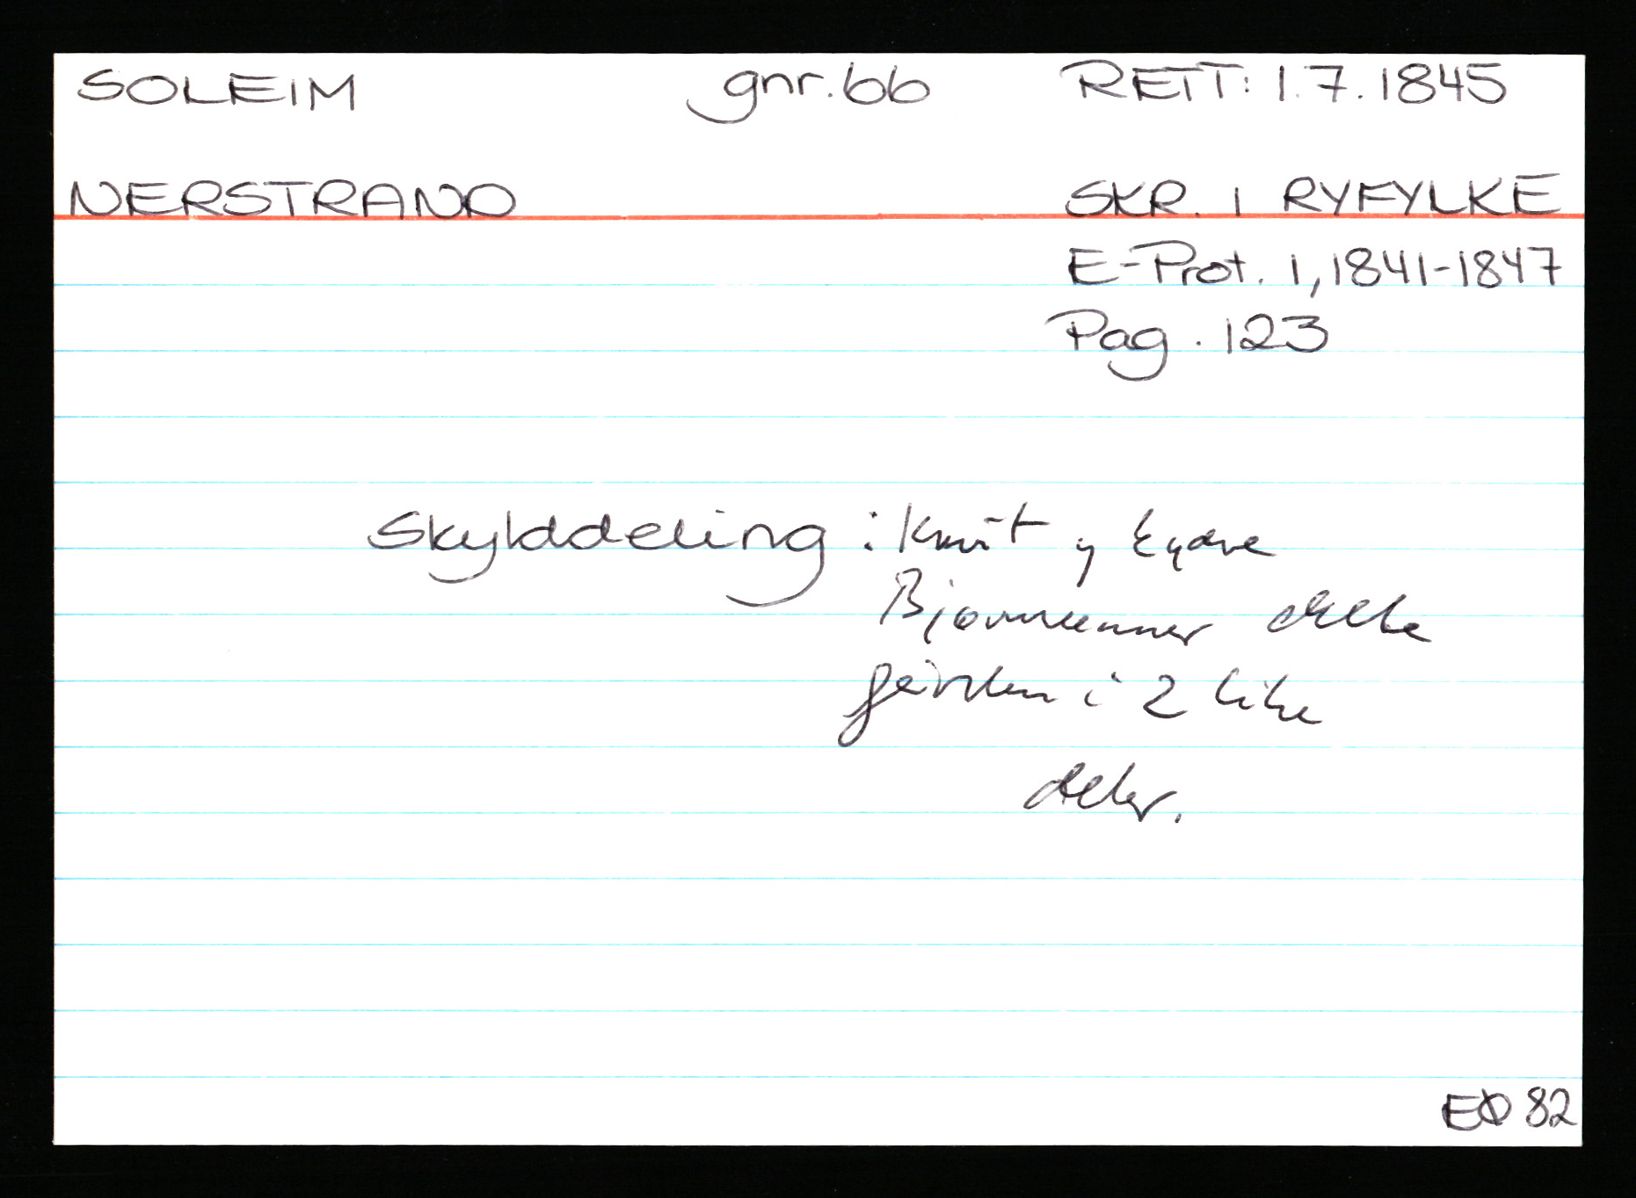 SOLEIM gnr. 66 RETT: 1.7.1845
NERSTRAND SKR. I RYFYLKE
E-Prot. 1, 1841-1847
Pag. 123
Skylddeling : Knut og
delte
garden i 2 like
deler.
EØ 82